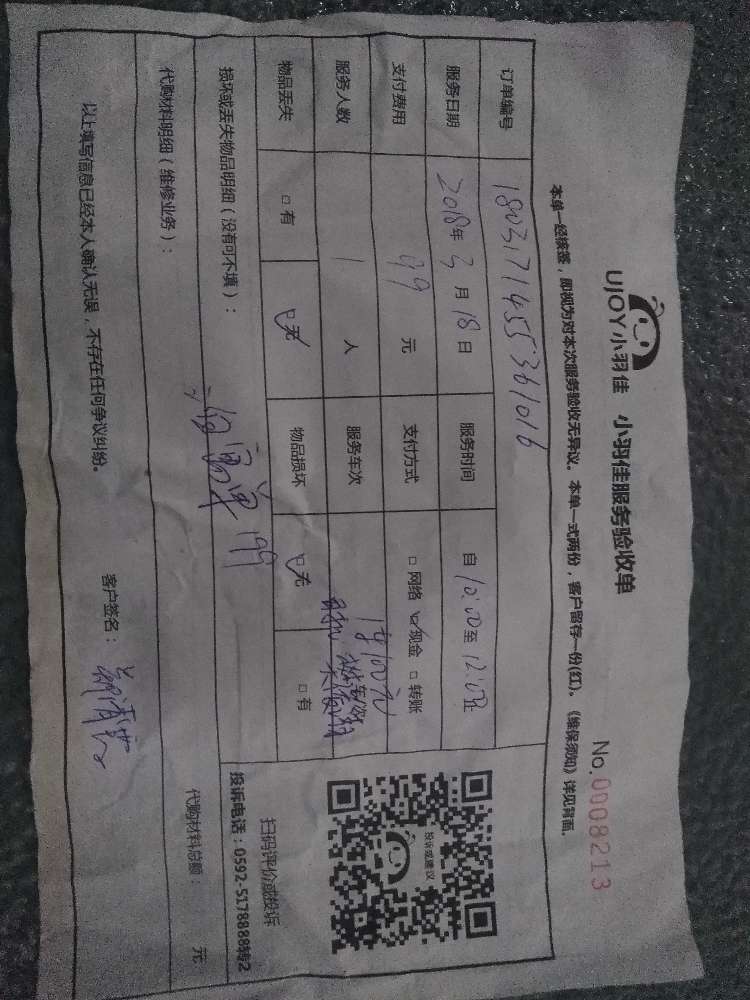 UJOY小羽佳 小羽佳服务验收单
No.0008213
本单一经核签，即视为对本次服务验收无异议。本单一式两份，客户留存一份(红)。《维保须知》详见背面。
订单编号 1803171455361016
服务日期 2018年3月18日 服务时间 自10:00至12:00止
支付费用 99元 支付方式 □网络 ☑现金 □转账
服务人数 1人 服务车次
1度100元
物品丢失 □有 ☑无 物品损坏 ☑无 □有
损坏或丢失物品明细（没有可不填）：
199
代购材料明细（维修业务）： 代购材料总额： 元
以上填写信息已经本人确认无误，不存在任何争议纠纷。 客户签名：
投诉或建议
扫码评价或投诉
投诉电话：0592-5178888转2